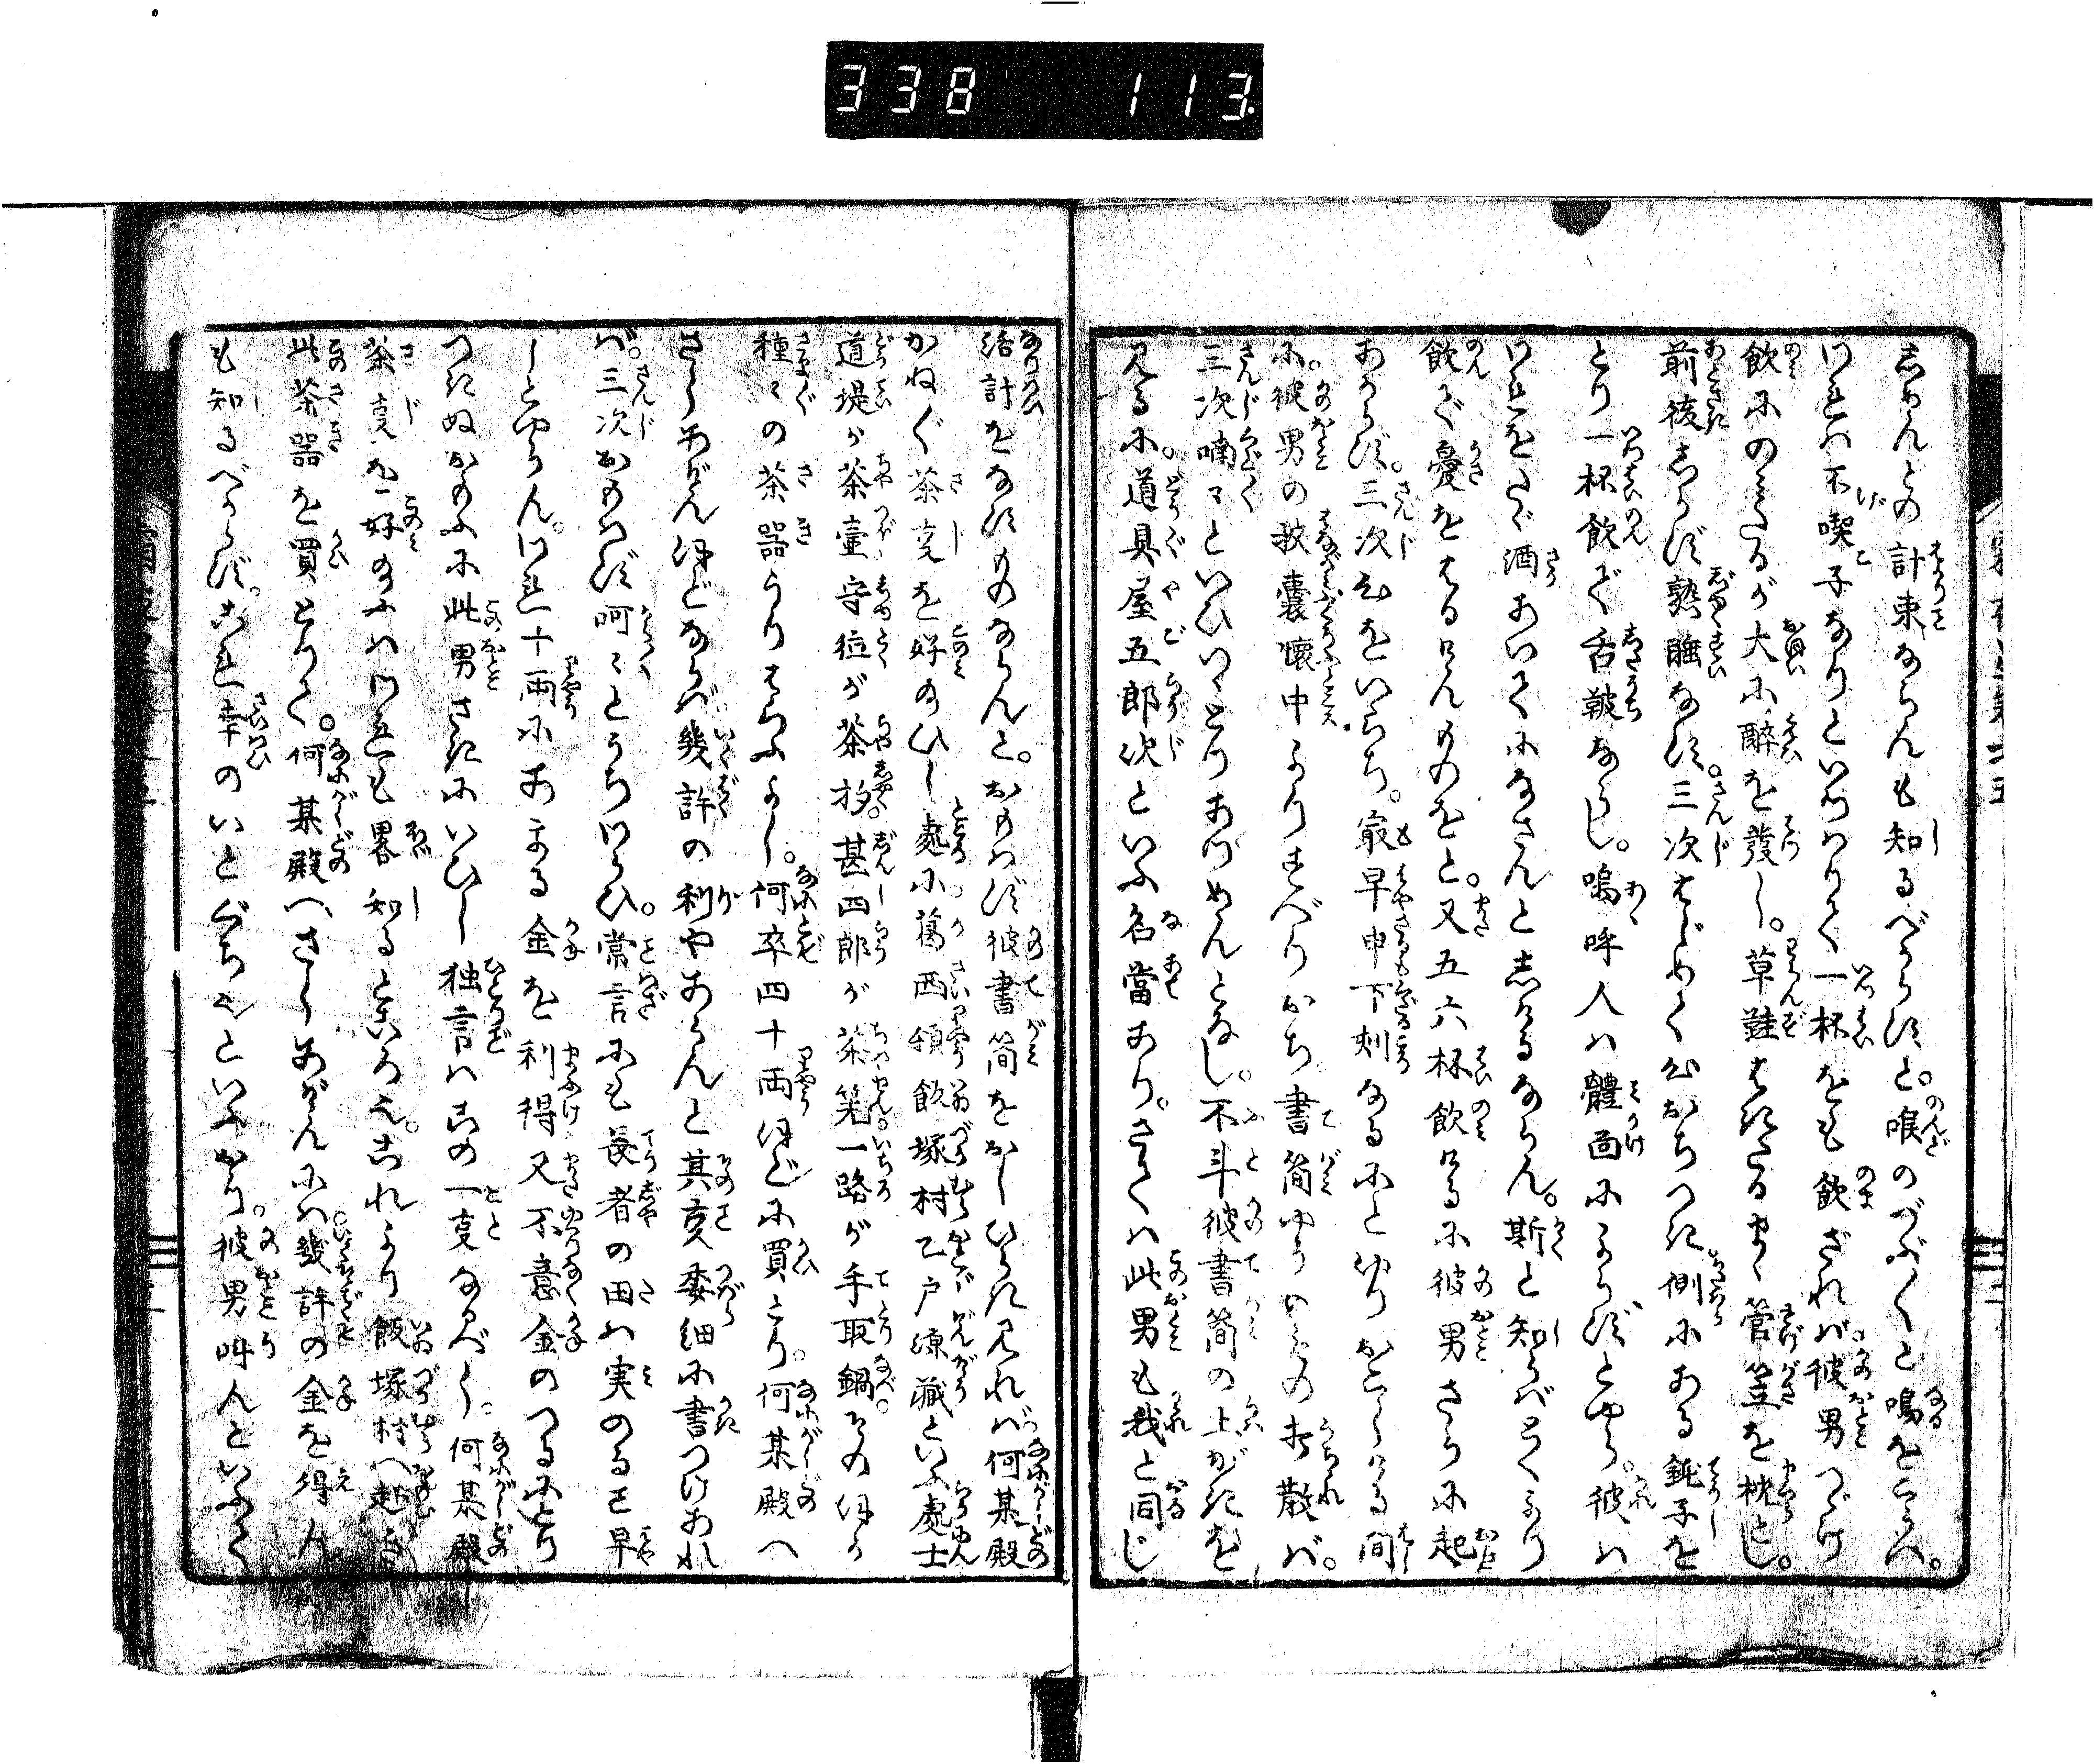 338 113
志めんとの計策ならんも知るべからずと。喉のづぶ〱と鳴をこらへ。
われは不喫子なりといつはりて一杯をも飲ざれば。彼男つゞけ
飲にのみたるが大に酔を發し。草鞋はきたるまゝ管笠を枕とし。
前後しらず熟睡なす。三次はじめて心おちつき側にある銚子を
とり一杯飲で舌皷ならし。嗚呼人は體面によらずとやら。彼は
われをたゞ酒あいてになさんとしたるならん。斯と知らばとくより
飲で憂をはらさんものをと。又五六杯飲けるに彼男さらに起
あがらず。三次心をいらち。最早申下刻なるにとゆりおこしける間
に。彼男の披嚢懐中よりすべりおち書簡やうのもの打散ば。
三次喃々といひいゝとりあつめんとなし。不斗彼書簡の上がきを
見るに。道具屋五郎次といふ名當あり。さては此男も我と同じ
活計をなすものならんと。おもはず彼書簡をおしひらき見れば。何某殿
かねて茶亊を好のひし處に。葛西領飯塚村乙戸源藏といふ處士
道堤が茶壷守位が茶杓。甚四郎が茶筅一路が手取鍋。その外
種々の茶器うりはらふよし。何卒四十両ほどに買とり。何某殿へ
さしあげんほどならば幾許の利やあらんと其亊委細に書つけあれ
ば。三次おもはず呵々とうちわらひ。常言にも長者の田は実のるも早
しとやらん。われ十両にあまる金を利得又不意金のつるにとり
つきぬ。かるに此男さきにいひし独言はこの一亊なるべし。何某殿
茶亊を好のふはわれも畧知るところ也。これより飯塚村へ赴き
此茶器を買とりて。何某殿へさしあげんには。幾許の金を得ん
も知るべからず。これ幸のいとぐち也といふおり。彼男呼人といふて